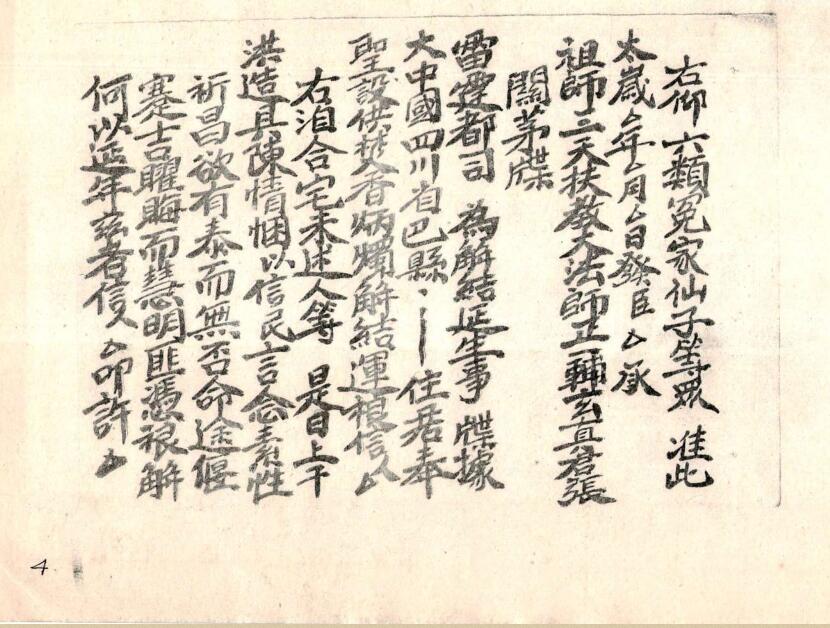 右仰六類冤家仙子等眾　准此
太歲厶年厶月厶日發臣厶承
祖師三天扶教大法師正一輔玄真君張
關茅牒
雷霆都司　為解結延生事　牒據
大中國四川省巴縣、｜住居奉
聖設供焚香炳燭解結運限信人厶
右洎合宅未述人等　是日上干
洪造具陳情悃以信民言念素性
祈昌欲有泰而無否命途偃
蹇吉曜晦而慧明匪憑禳解
何以延年茲者信人厶叩許厶
4